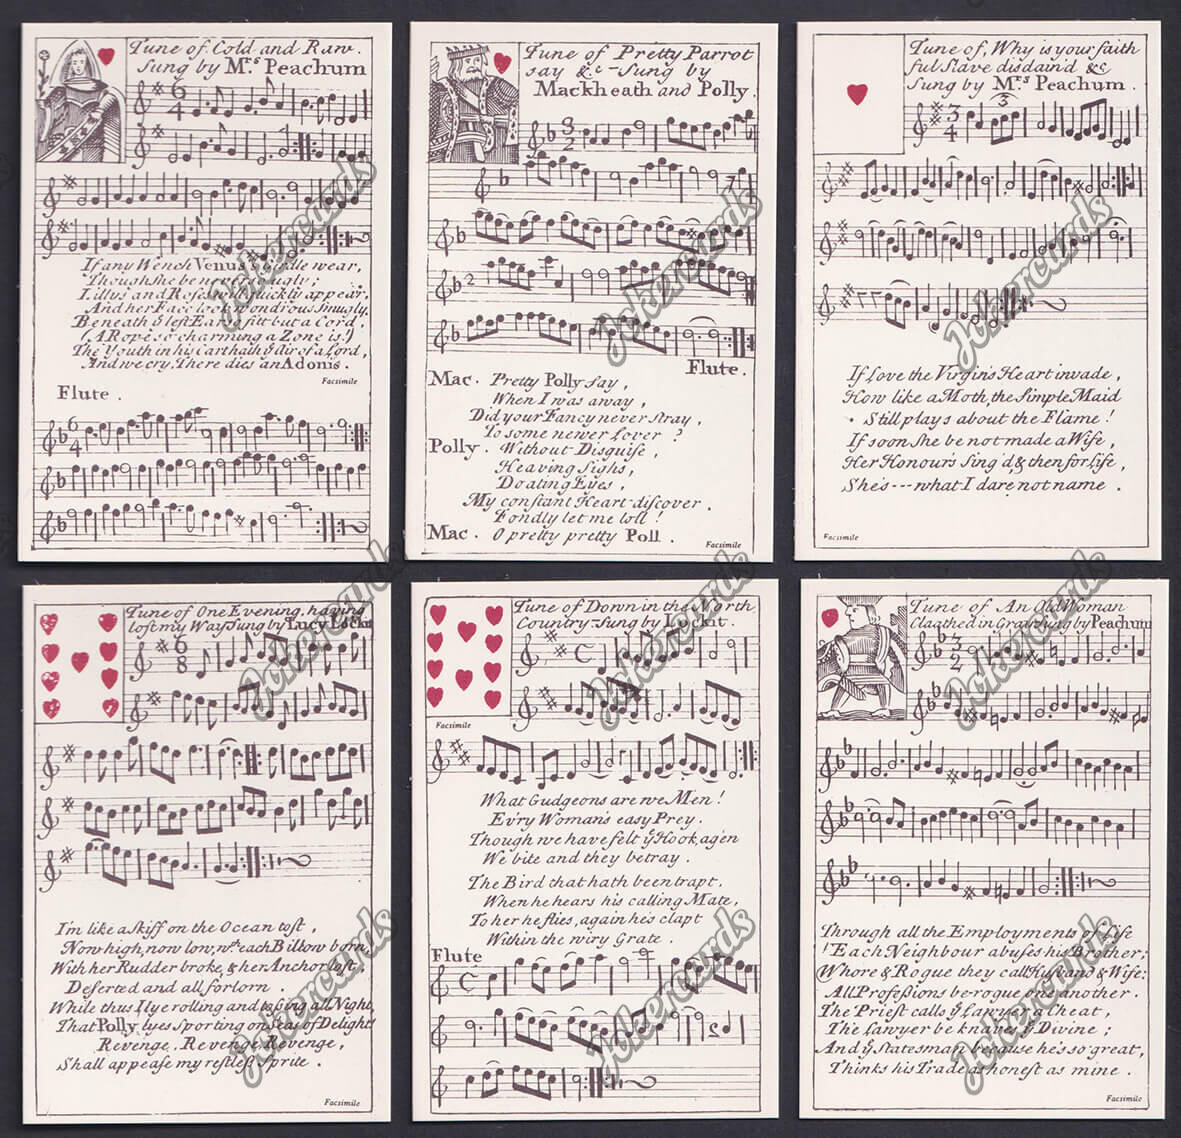 Tune of Cold and Raw.
Sung by Mrs Peachum
6
4
If any Wench Venus wear,
Though she be never ugly;
Lillys and Roses quickly appear,
And her Face look wondrous smugly.
Beneath ÿ left Ear so fitt but a Cord,
(A Rope so charming a Zone is.)
The Youth in his Cart hath ÿ air of a Lord,
And we cry, There dies an Adonis.
Facsimile
Flute.
6
4
Tune of Pretty Parrot
say &c - Sung by
Mackheath and Polly.
3
2
2
Flute.
Mac. Pretty Polly say,
When I was away,
Did your Fancy never stray,
To some newer Lover?
Polly. Without Disguise,
Heaving Sighs,
Doating Eyes,
My constant Heart discover.
Fondly let me loll!
Mac. O pretty pretty Poll.
Facsimile
Tune of, Why is your faith
ful Slave disdain'd &c
Sung by Mrs Peachum.
3
3
4
If Love the Virgin's Heart invade,
How like a Moth, the simple Maid
Still plays about the Flame!
If soon she be not made a Wife,
Her Honour's sing'd & then for life,
She's --- what I dare not name.
Facsimile
Tune of One Evening, having
lost my Way Sung by Lucy Lockit
6
8
I'm like a skiff on the Ocean tost,
Now high, now low, wth each Billow born,
With her Rudder broke, & her Anchor lost,
Deserted and all forlorn.
While thus I lye rolling and tossing all Night,
That Polly lyes sporting on Seas of Delight!
Revenge, Revenge, Revenge,
Shall appease my restless sprite.
Facsimile
Tune of Down in the North
Country - sung by Lockit.
C
Facsimile
What Gudgeons are we Men!
Ev'ry Woman's easy Prey.
Though we have felt ÿ Hook, agen
We bite and they betray.
The Bird that hath been trapt,
When he hears his calling Mate,
To her he flies, again he's clapt
Within the wiry Grate.
Flute
C
Tune of An Old Woman
Cloathed in Gray Sung by Peachum
3
2
Through all the Employments of Life
Each Neighbour abuses his Brother;
Whore & Rogue they call Husband & Wife:
All Professions be-rogue one another.
The Priest calls ÿ Lawyer a Cheat,
The Lawyer be knaves ÿ Divine;
And ÿ Statesman because he's so great,
Thinks his Trade as honest as mine.
Facsimile
Jokercards
Jokercards
Jokercards
Jokercards
Jokercards
Jokercards
Jokercards
Jokercards
Jokercards